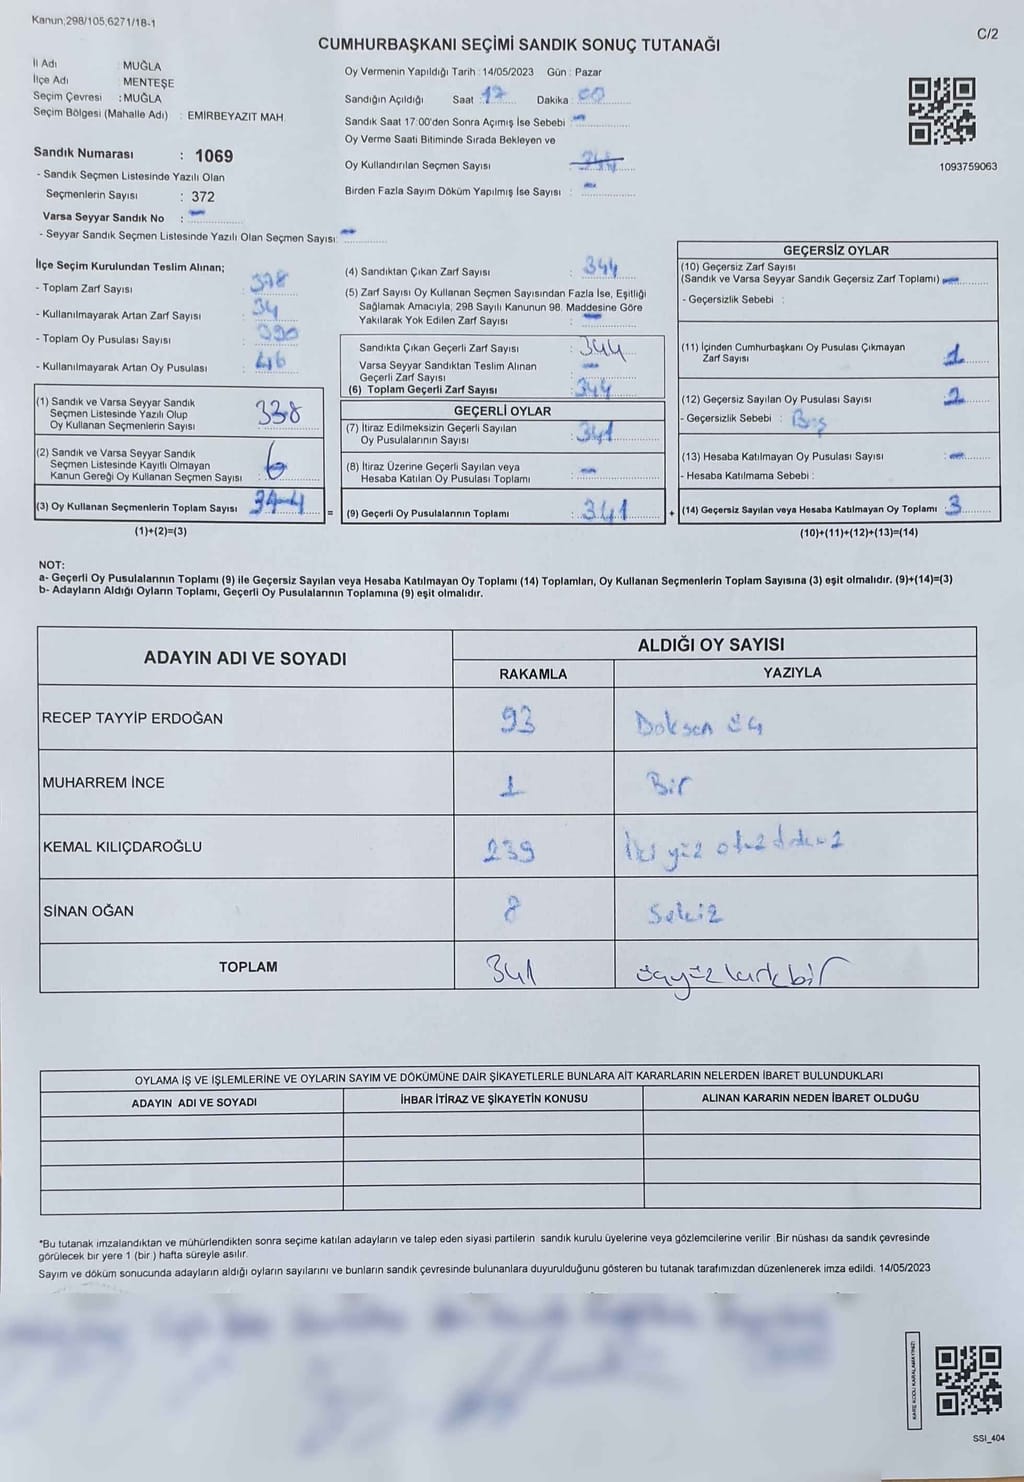 Kanun;298/105,6271/18-1
C/2
CUMHURBAŞKANI SEÇİMİ SANDIK SONUÇ TUTANAĞI
İl Adı : MUĞLA
İlçe Adı : MENTEŞE
Seçim Çevresi : MUĞLA
Seçim Bölgesi (Mahalle Adı) : EMİRBEYAZIT MAH.
Sandık Numarası : 1069
- Sandık Seçmen Listesinde Yazılı Olan
Seçmenlerin Sayısı : 372
Varsa Seyyar Sandık No : -
- Seyyar Sandık Seçmen Listesinde Yazılı Olan Seçmen Sayısı: -
Oy Vermenin Yapıldığı Tarih : 14/05/2023 Gün : Pazar
Sandığın Açıldığı Saat : 17 Dakika : 00
Sandık Saat 17:00'den Sonra Açımış İse Sebebi : -
Oy Verme Saati Bitiminde Sırada Bekleyen ve
Oy Kullandırılan Seçmen Sayısı : 344
Birden Fazla Sayım Döküm Yapılmış İse Sayısı : -
1093759063
İlçe Seçim Kurulundan Teslim Alınan;
- Toplam Zarf Sayısı : 378
- Kullanılmayarak Artan Zarf Sayısı : 34
- Toplam Oy Pusulası Sayısı : 390
- Kullanılmayarak Artan Oy Pusulası : 46
(1) Sandık ve Varsa Seyyar Sandık
Seçmen Listesinde Yazılı Olup
Oy Kullanan Seçmenlerin Sayısı : 338
(2) Sandık ve Varsa Seyyar Sandık
Seçmen Listesinde Kayıtlı Olmayan
Kanun Gereği Oy Kullanan Seçmen Sayısı : 6
(3) Oy Kullanan Seçmenlerin Toplam Sayısı : 344 =
(1)+(2)=(3)
(4) Sandıktan Çıkan Zarf Sayısı : 344
(5) Zarf Sayısı Oy Kullanan Seçmen Sayısından Fazla İse, Eşitliği
Sağlamak Amacıyla, 298 Sayılı Kanunun 98. Maddesine Göre
Yakılarak Yok Edilen Zarf Sayısı : -
Sandıkta Çıkan Geçerli Zarf Sayısı : 344
Varsa Seyyar Sandıktan Teslim Alınan
Geçerli Zarf Sayısı : -
(6) Toplam Geçerli Zarf Sayısı : 344
GEÇERLİ OYLAR
(7) İtiraz Edilmeksizin Geçerli Sayılan
Oy Pusulalarının Sayısı : 341
(8) İtiraz Üzerine Geçerli Sayılan veya
Hesaba Katılan Oy Pusulası Toplamı : -
(9) Geçerli Oy Pusulalarının Toplamı : 341 +
GEÇERSİZ OYLAR
(10) Geçersiz Zarf Sayısı
(Sandık ve Varsa Seyyar Sandık Geçersiz Zarf Toplamı) : -
- Geçersizlik Sebebi :
(11) İçinden Cumhurbaşkanı Oy Pusulası Çıkmayan
Zarf Sayısı : 1
(12) Geçersiz Sayılan Oy Pusulası Sayısı : 2
- Geçersizlik Sebebi : Boş
(13) Hesaba Katılmayan Oy Pusulası Sayısı : -
- Hesaba Katılmama Sebebi :
(14) Geçersiz Sayılan veya Hesaba Katılmayan Oy Toplamı : 3
(10)+(11)+(12)+(13)=(14)
NOT:
a- Geçerli Oy Pusulalarının Toplamı (9) ile Geçersiz Sayılan veya Hesaba Katılmayan Oy Toplamı (14) Toplamları, Oy Kullanan Seçmenlerin Toplam Sayısına (3) eşit olmalıdır. (9)+(14)=(3)
b- Adayların Aldığı Oyların Toplamı, Geçerli Oy Pusulalarının Toplamına (9) eşit olmalıdır.
ADAYIN ADI VE SOYADI ALDIĞI OY SAYISI
RAKAMLA YAZIYLA
RECEP TAYYİP ERDOĞAN 93 Doksan üç
MUHARREM İNCE 1 Bir
KEMAL KILIÇDAROĞLU 239 İki yüz otuz dokuz
SİNAN OĞAN 8 Sekiz
TOPLAM 341 üçyüz kırkbir
OYLAMA İŞ VE İŞLEMLERİNE VE OYLARIN SAYIM VE DÖKÜMÜNE DAİR ŞİKAYETLERLE BUNLARA AİT KARARLARIN NELERDEN İBARET BULUNDUKLARI
ADAYIN ADI VE SOYADI İHBAR İTİRAZ VE ŞİKAYETİN KONUSU ALINAN KARARIN NEDEN İBARET OLDUĞU
*Bu tutanak imzalandıktan ve mühürlendikten sonra seçime katılan adayların ve talep eden siyasi partilerin sandık kurulu üyelerine veya gözlemcilerine verilir .Bir nüshası da sandık çevresinde
görülecek bir yere 1 (bir ) hafta süreyle asılır.
Sayım ve döküm sonucunda adayların aldığı oyların sayılarını ve bunların sandık çevresinde bulunanlara duyurulduğunu gösteren bu tutanak tarafımızdan düzenlenerek imza edildi. 14/05/2023
KARE KODU KARALAMAYINIZ!
SSI_404